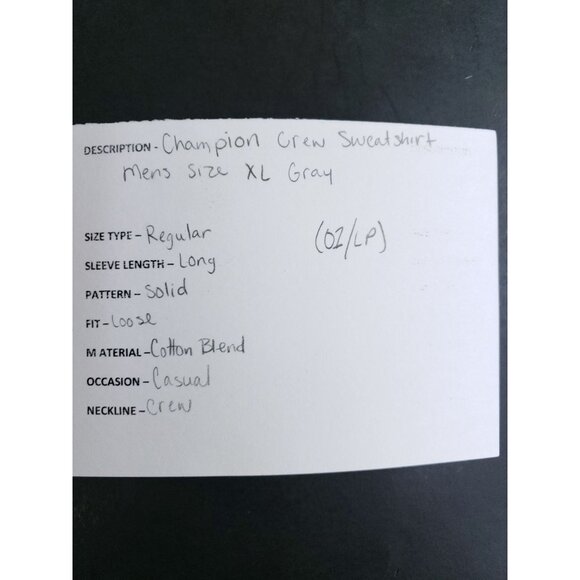 DESCRIPTION - Champion Crew Sweatshirt
Mens Size XL Gray
SIZE TYPE - Regular
(OZ/LP)
SLEEVE LENGTH - Long
PATTERN - Solid
FIT - Loose
MATERIAL - Cotton Blend
OCCASION - Casual
NECKLINE - Crew